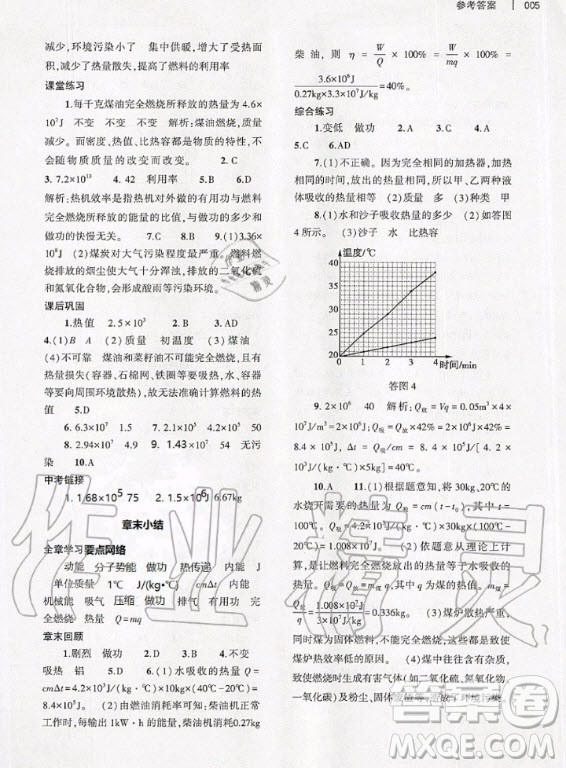 参考答案 005
减少,环境污染小了 集中供暖,增大了受热面
积,减少了热量散失,提高了燃料的利用率
课堂练习
1.每千克煤油完全燃烧所释放的热量为4.6×
10⁷J 不变 不变 不变 解析:煤油燃烧,质量
减少。而密度、热值、比热容都是物质的特性,不
会随物质质量的改变而改变。 2.C
3.7.2×10¹³ 4.42 利用率 5.B 6.D
解析:热机效率是热机对外做的有用功与燃料
完全燃烧所释放的能量的比值,与做功的多少和
做功的快慢无关。 7.C 8.B 9.(1)3.36×
10⁶ (2)煤炭对大气污染程度最严重。燃料燃
烧排放的烟尘使大气十分浑浊,排放的二氧化硫
和氮氧化合物,会形成酸雨等污染环境。
课后巩固
1.热值 2.5×10³ 2.B 3.AD
4.(1)B A (2)质量 初温度 (3)煤油
(4)不可靠 煤油和菜籽油不可能完全燃烧,且有
热量损失(容器、石棉网、铁圈等要吸热,还有热量
要向周围环境散热),故无法准确计算燃料的热值
5.D
6.6.3×10⁷ 1.5 7.2.1×10⁵ 50
8.2.94×10⁶ 9.1.43×10⁷ 50 无污
染 10.A
中考链接
1.1.68×10⁵ 75 2.1.5×10⁶ 6.67kg
章末小结
全章学习要点网络
动能 分子势能 做功 热传递 内能 J
单位质量 1℃ J/(kg•℃) cmΔt 内能
机械能 吸气 压缩 做功 1kg 某种燃料
完全燃烧 热量 Q=mq
章末回顾
1.剧烈 做功 2.D 3.A 4.不变
吸热 铝 5.D 6.(1)水吸收的热量Q=
cmΔt=4.2×10³J/(kg·℃)×10kg×(40℃-20℃)=
8.4×10⁵J (2)由燃油消耗率可知,柴油机正常
工作时,每输出1kW·h的能量,柴油机消耗0.27kg
柴油,则η=W/Q×100%=W/mq×100%=
3.6×10⁶J/0.27kg×3.3×10⁷J/kg=40%。
综合练习
1.变低 做功 2.A 3.C 4.A
5.C 6.AD
7.(1)不正确。因为完全相同的加热器,加热
相同的时间,放出的热量相同,所以甲、乙两种液
体吸收的热量相同 (2)质量 多 (3)种类 甲
8.(1)水和沙子吸收热量的多少 (2)如答图
4所示。 (3)沙子 水 比热容
温度/℃
40
36
32
28
24
20
0 1 2 3 4 时间/min
答图4
9.2×10⁶ 40 解析:Q放=Vq=0.05m³×4
×10⁷J/m³=2×10⁶J;Q吸=Q放×42%=2×10⁶J×42%=
8.4×10⁵J,Δt=Q吸/cm=8.4×10⁵J/[4.2×
10³J/(kg·℃)×5kg]=40℃。
10.A 11.(1)根据题意知,将30kg、20℃的
水烧开需要的热量为Q吸=cm(t-t₀),代入数据
得:Q吸=4.2×10³J/(kg·℃)×30kg×(100℃-
20℃)=1.008×10⁷J (2)依题意从理论上计
算,是让燃料完全燃烧放出的热量等于水吸收的
热量。Q放=Q吸=mq,其中q为煤的热值。m=
Q放/q=1.008×10⁷J/3×10⁷J/kg=0.336kg。 (3)煤炉散热严重,
同时煤为固体燃料,不能完全燃烧,这些都是造成
煤炉热效率低的原因。 (4)煤中含有多种杂质,
同时燃烧不完全,容易造成有害气体(如二氧化硫、二氧化氮、
一氧化碳)及粉尘、固体
作业精灵
答案圈
MXQE.COM